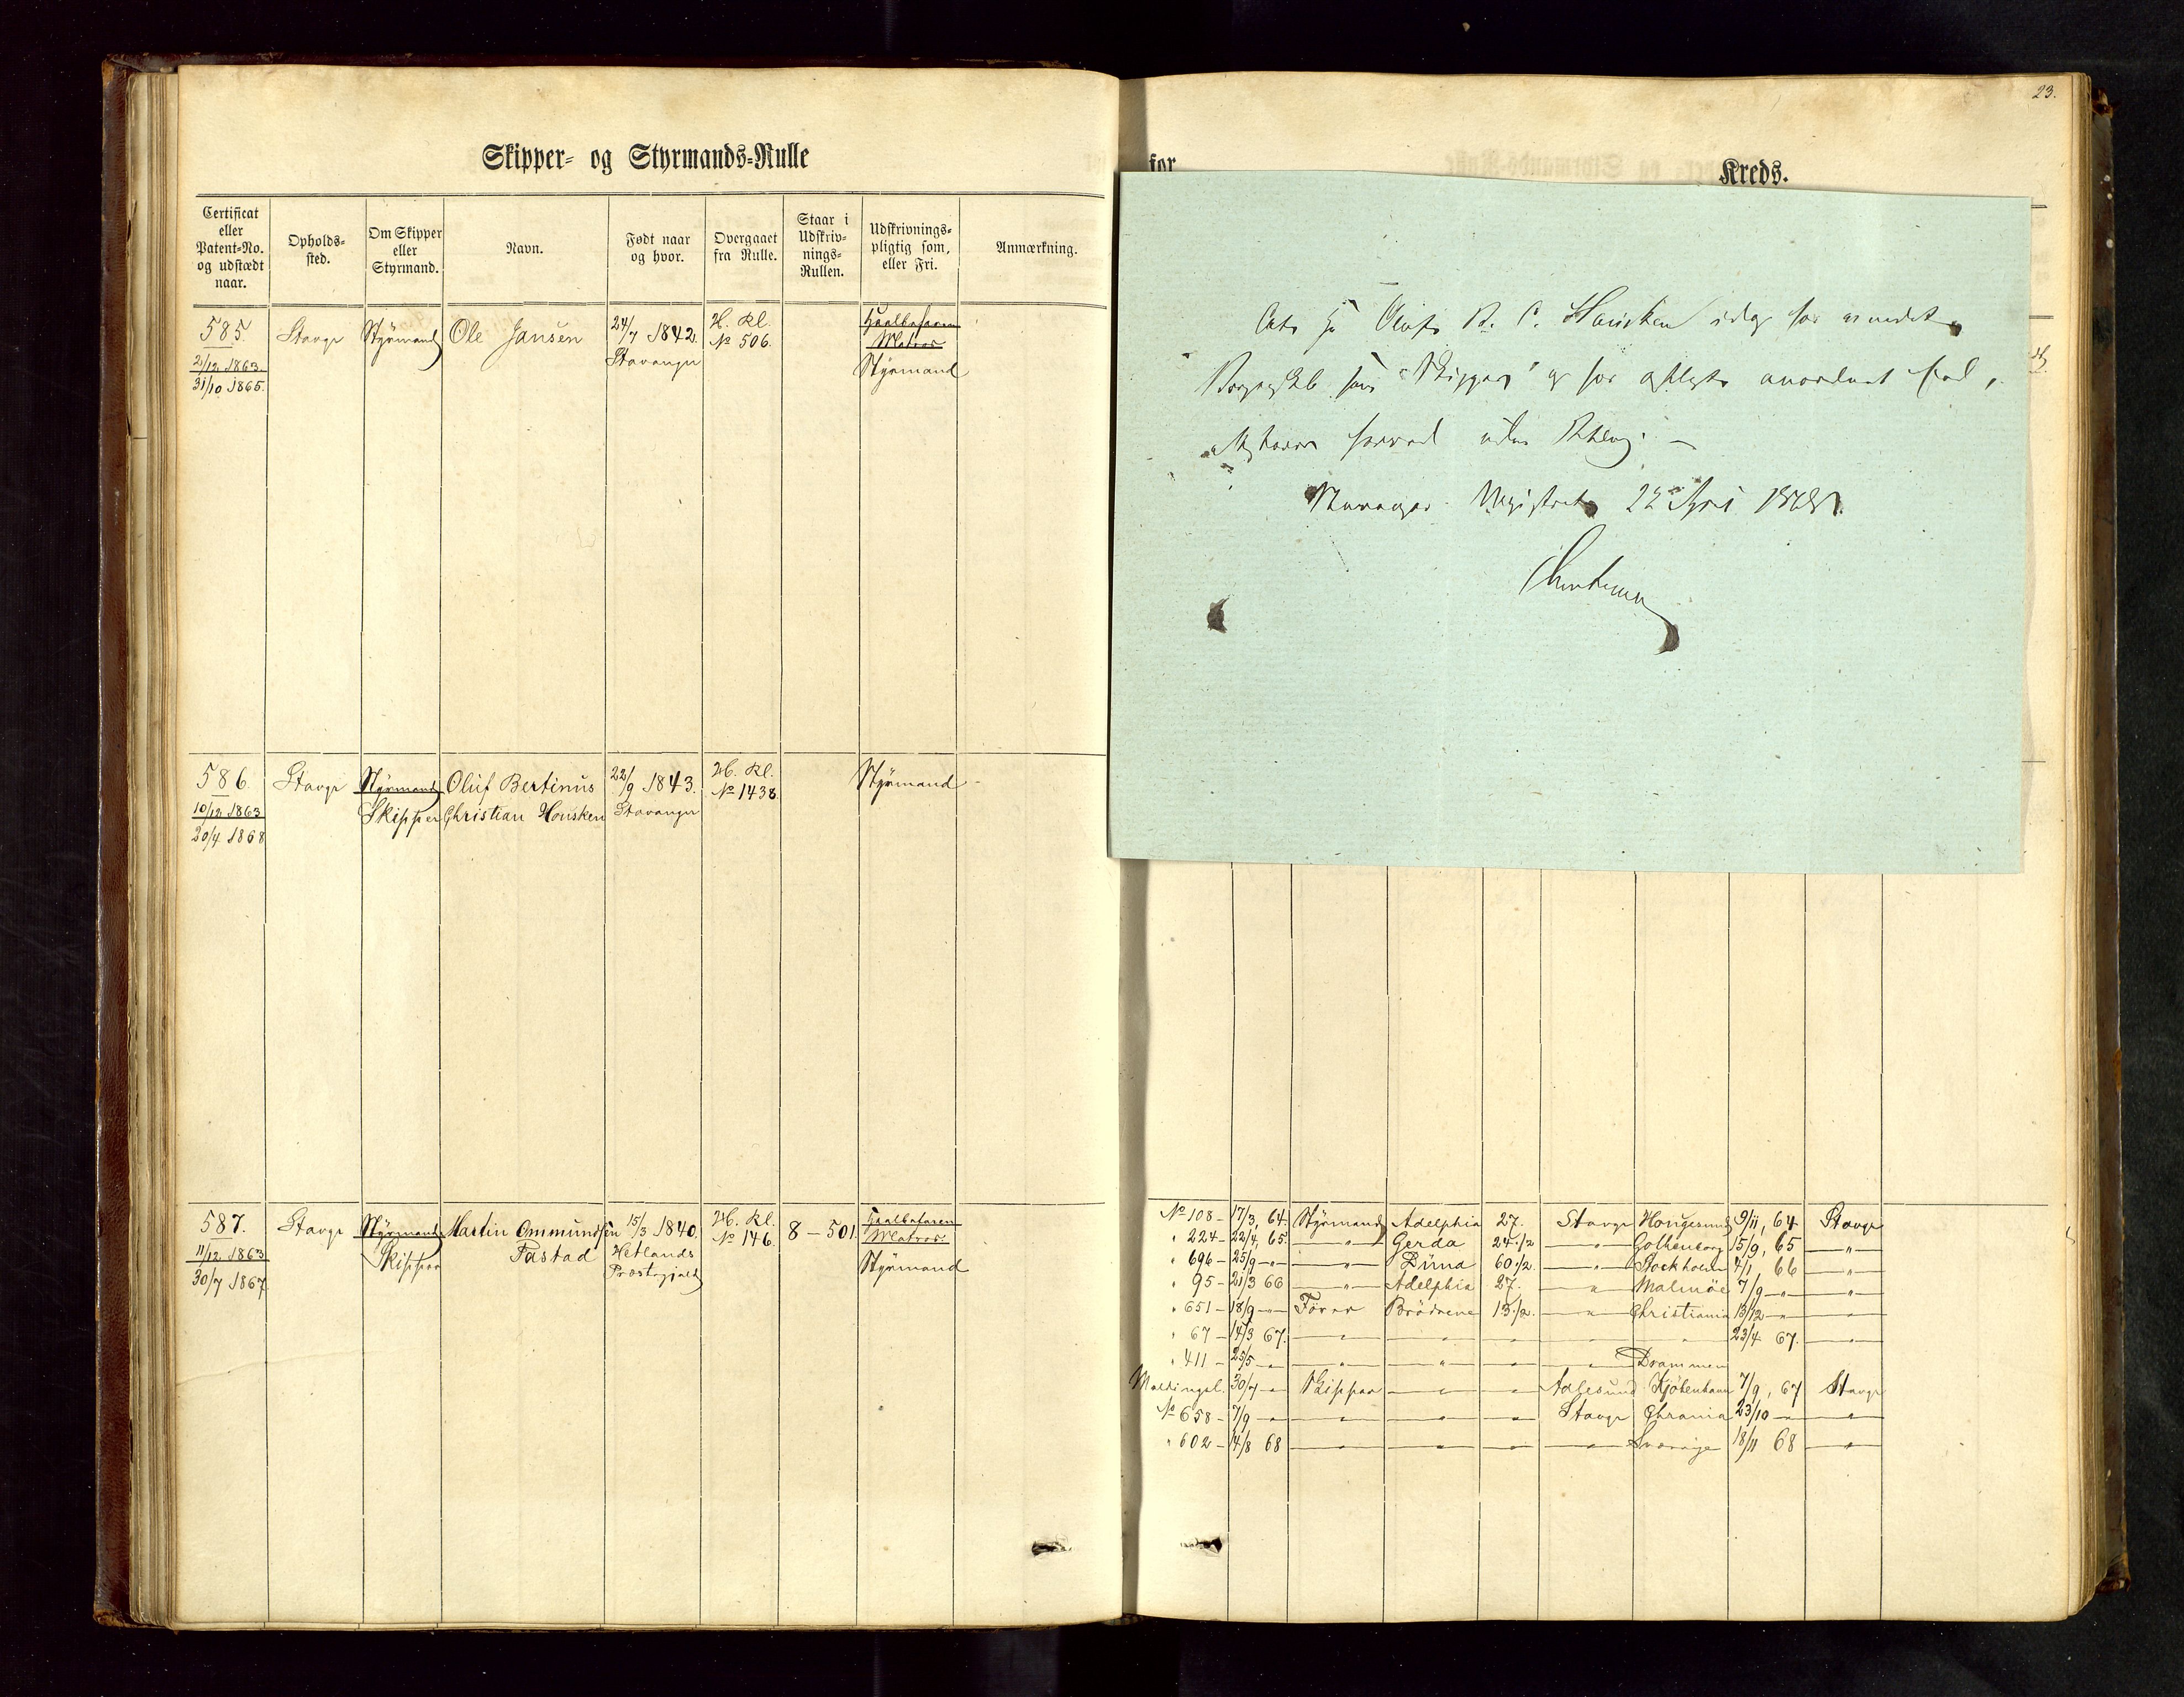 23.
Skipper- og Styrmands-Rulle
for
Kreds.
Certificat eller Patent-No. og udstædt naar.
Opholds-sted.
Om Skipper eller Styrmand.
Navn.
Født naar og hvor.
Overgaaet fra Rulle.
Staar i Udskriv-nings-Rullen.
Udskrivnings-pligtig som, eller Fri.
Anmærkning.
585. Stavgr Styrmand Ole Jansen 24/7 1842. H. Kl. Halvbefaren
2/12 1863. Stavanger No 506. Matros
31/10 1865. Styrmand
At Hr Oluf B. C. Housken idag har vundet
Borgerskab som "Skipper" og har aflagt anordnet Eed,
Stavanger Magistrat 22 April 1868.
586. Stavgr Styrmand Oluf Bertinus 22/9 1843. H. Kl. Styrmand
10/12 1863 Skipper Christian Housken Stavanger No 1438
20/4 1868
587. Stavgr Styrmand Martin Ommundsen 15/3 1840. H. Kl. 8-501. Halvbefaren
11/12 1863 Skipper Tastad Hetlands No 146. Matros.
30/7 1867 Præstegjæld Styrmand
No 108 - 17/3, 64. Styrmand Adelphia 27. Stavgr Hougesund 9/11, 64 Stavgr
" 224 - 22/4, 65. — " — Gerda 24 1/2 — " — Gothenborg 15/9, 65 — " —
" 696 - 25/9 — " — — " — Düna 60 1/2 — " — Stockholm 4/1 66 — " —
" 95 - 21/3 66 — " — Adelphia 27. — " — Malmöe 7/9 — " — — " —
" 651 - 18/9 — " — Fører Brødrene 13 1/2 — " — Christiania 13/12 — " — — " —
" 67 - 14/3 67. — " — — " — — " — — " — — " — 23/4 67. — " —
" 411 - 25/5 — " — — " — — " — — " — — " — Drammen
Meldingsl. 30/7 — " — Skipper — " — — " — Aalesund Kjöbenhavn 7/9, 67 Stavgr
No 658 - 7/9 — " — — " — — " — — " — Stavgr Chrania 23/10 — " — — " —
" 602 - 14/8 68 — " — — " — — " — — " — Sverrige 18/11 68 — " —